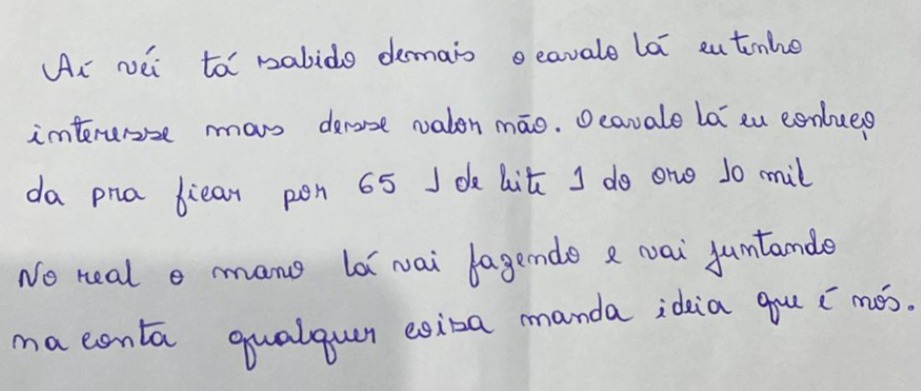 Ai véi tá sabido demais o cavalo lá eu tinho
interesse mas desse valor não. O cavalo lá eu conheço
da pra ficar por 65 1 de leite 1 do oro 10 mil
No real o mano lá vai fazendo e vai juntando
na conta qualquer coisa manda ideia que é nós.